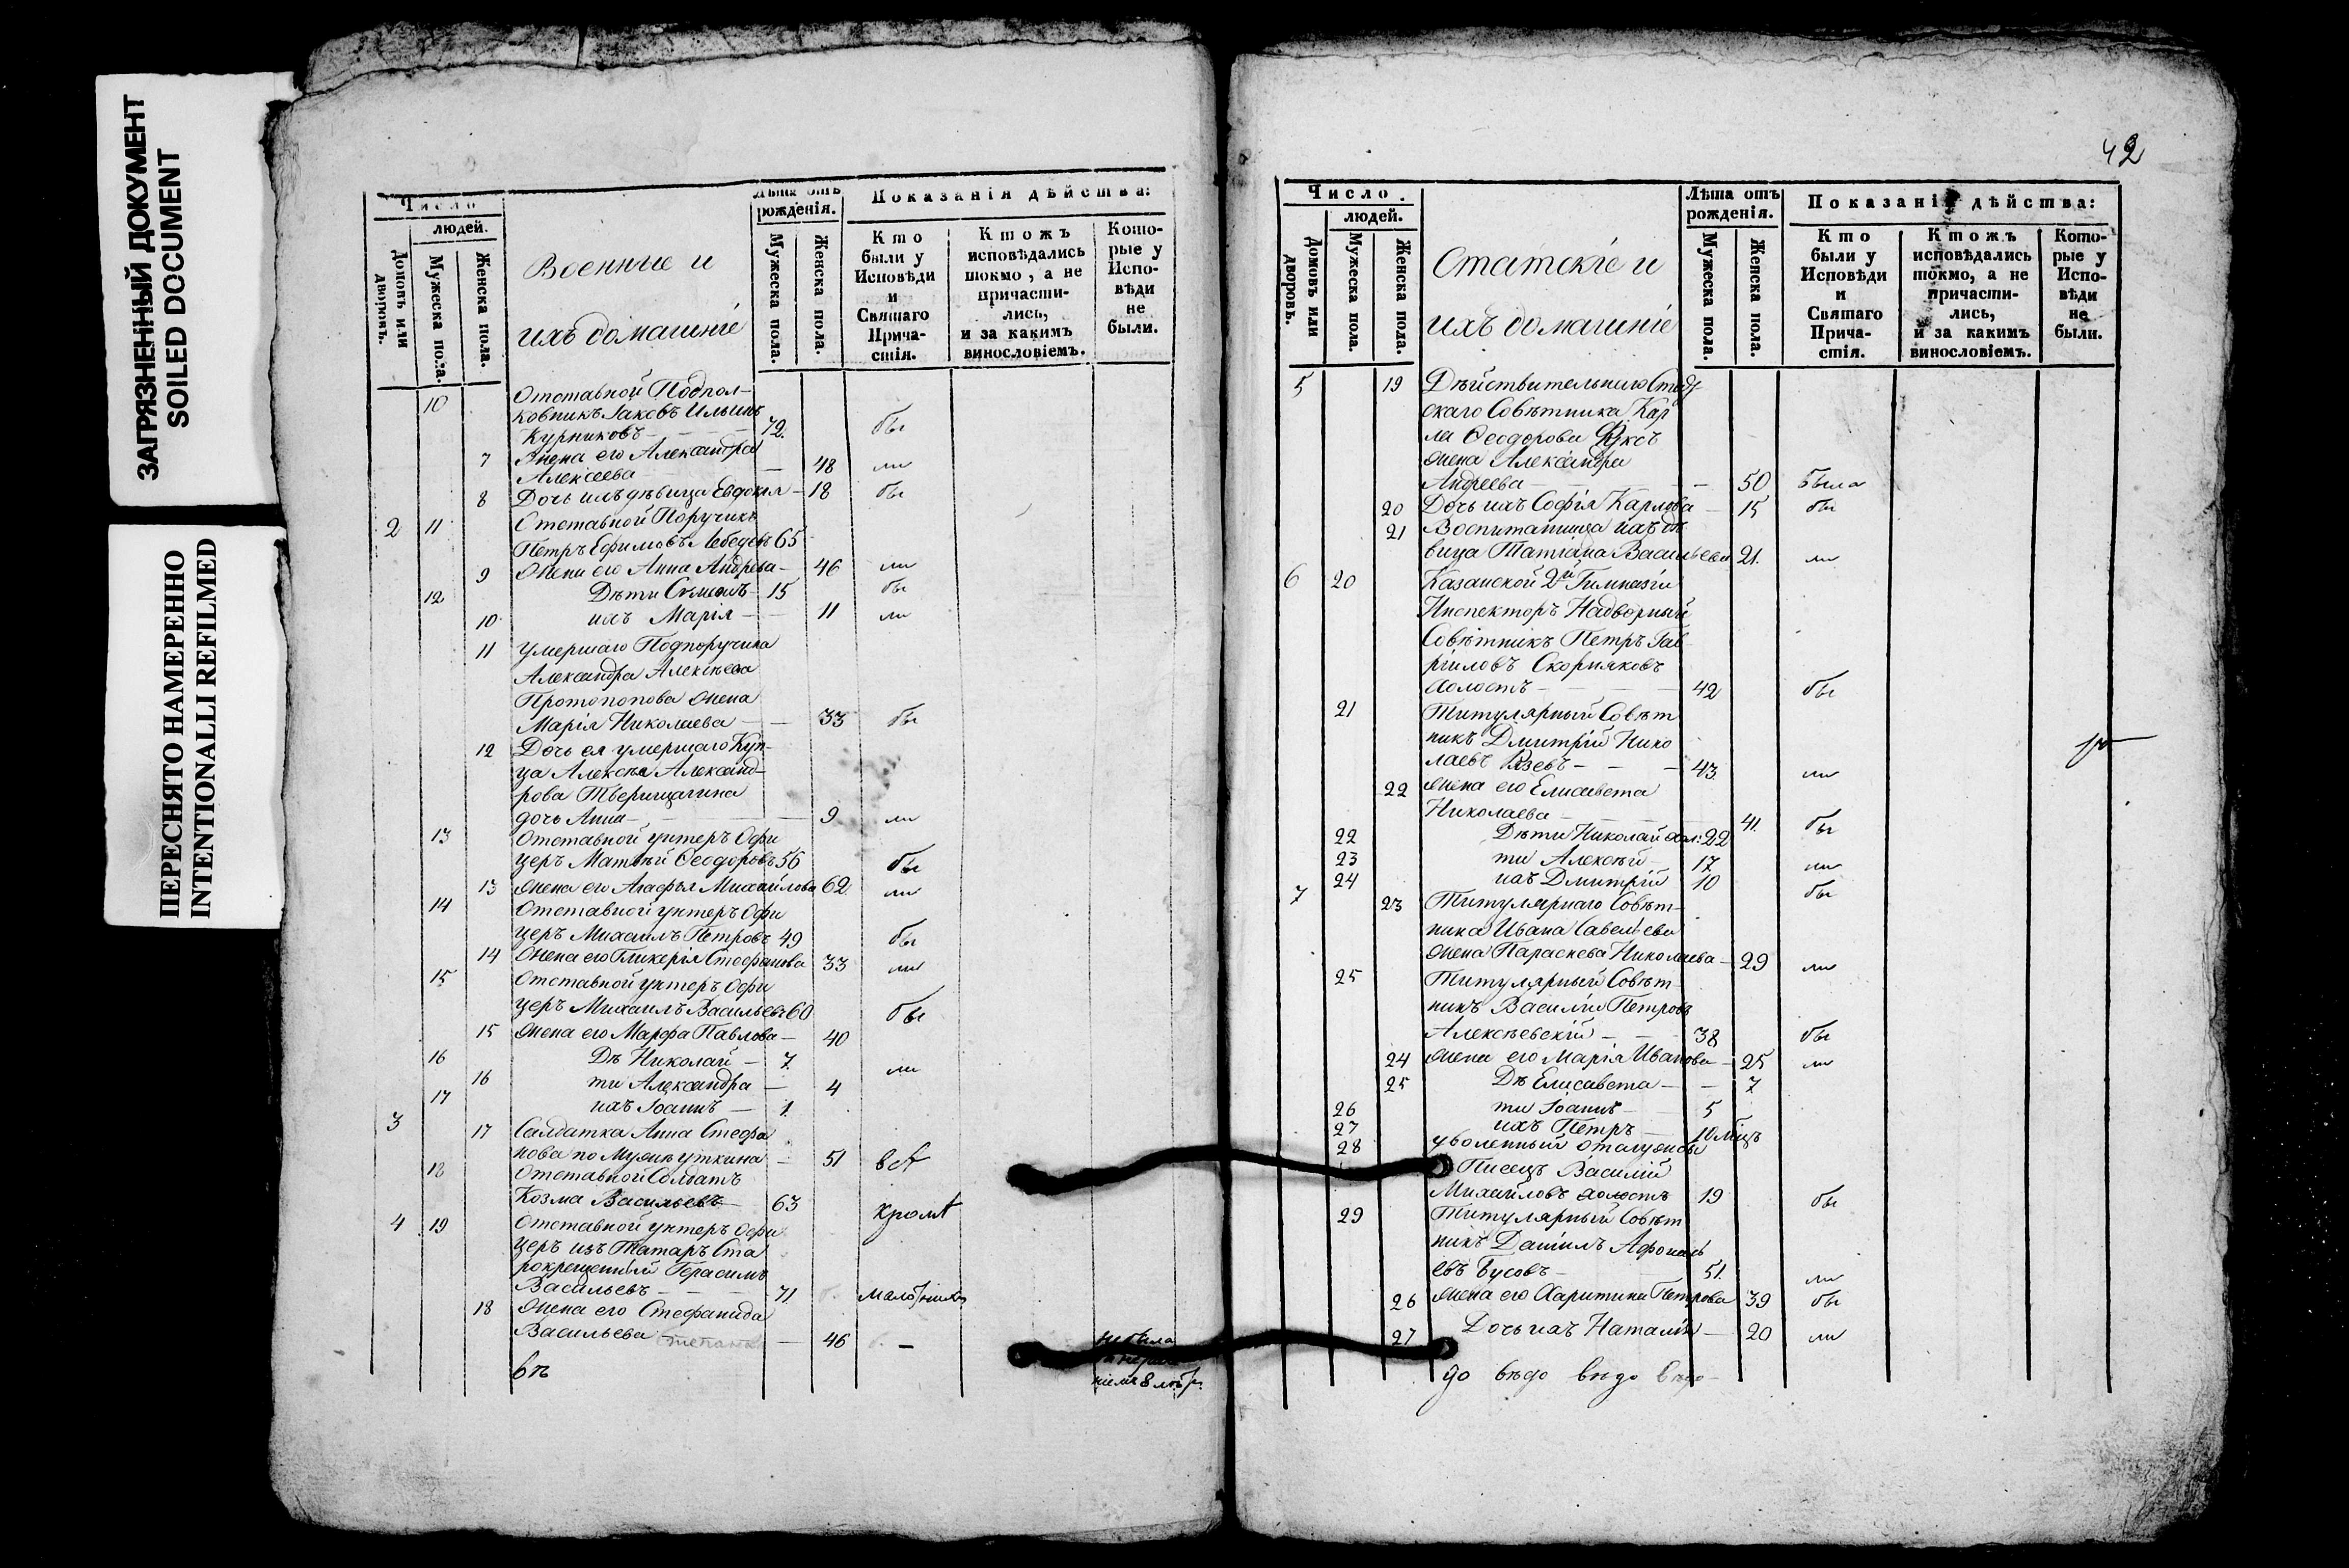 ЗАГРЯЗНЕННЫЙ ДОКУМЕНТ
SOILED DOCUMENT
ПЕРЕСНЯТО НАМЕРЕННО
INTENTIONALLI REFILMED
Число
людей.
Домовъ или дворовъ.
Мужеска пола.
Женска пола.
Военные и
ихъ домашніе
Лѣта отъ рожденія.
Мужеска пола.
Женска пола.
Показанія дѣйства:
Кто были у Исповѣди и Святаго Причастія.
Ктожъ исповѣдались токмо, а не причастились, и за какимъ винословіемъ.
Которые у Исповѣди не были.
10 Отставной Подпол-
ковникъ Іаковъ Ильинъ
Курниковъ 72. бы
7 Жена его Александра
Алексеева 48 ли
8 Дочь ихъ дѣвица Евдокія 18 бы
2 11 Отставной Поручикъ
Петръ Ефимовъ Лебедевъ 65
9 Жена его Анна Андреева 46 ли
12 Дѣти Симеонъ 15 бы
10 ихъ Марія 11 ли
11 Умершаго Подпоручика
Александра Алексѣева
Протопопова жена
Марія Николаева 33 бы
12 Дочь ея умершаго Куп-
ца Алексѣя Александ-
рова Тверищагина
дочь Анна 9 ли
13 Отставной унтеръ Офи
церъ Матвѣй Ѳеодоровъ 56 бы
13 Жена его Агафья Михайлова 62 ли
14 Отставной унтеръ Офи
церъ Михаилъ Петровъ 49 бы
14 Жена его Гликерія Стефанова 33 ли
15 Отставной унтеръ Офи
церъ Михаилъ Васильевъ 60 бы
15 Жена его Марфа Павлова 40
16 Дѣ Николай 7. ли
16 ти Александра 4
17 ихъ Іоаннъ 1.
3 17 Салдатка Анна Стефа
нова по мужѣ Уткина 51 всѣ
18 Отставной Солдатъ
Козма Васильевъ 63 кромѣ
4 19 Отставной унтеръ Офи
церъ изъ Татаръ Ста
рокрещенный Герасимъ
Васильевъ 71
18 Жена его Стефанида
Васильева 46 –
не была
вѣ
42
Число.
людей.
Домовъ или дворовъ.
Мужеска пола.
Женска пола.
Статскіе и
ихъ домашніе
Лѣта отъ рожденія.
Мужеска пола.
Женска пола.
Показанія дѣйства:
Кто были у Исповѣди и Святаго Причастія.
Ктожъ исповѣдались токмо, а не причастились, и за какимъ винословіемъ.
Которые у Исповѣди не были.
5 19 Дѣйствительнаго Стат
скаго Совѣтника Кар
ла Ѳеодорова Фуксъ
жена Александра
Андреева 50 была
20 Дочь ихъ Софія Карлова 15 бы
21 Воспитанница ихъ дѣ
вица Татіана Васильева 21. ли
6 20 Казанской 2й Гимназіи
Инспекторъ Надворный
Совѣтникъ Петръ Гав
рииловъ Скорняковъ
холостъ 42 бы
21 Титулярный Совѣт
никъ Дмитрій Нико
лаевъ 43. ли
22 Жена его Елисавета
Николаева 41. бы
22 Дѣти Николай хол: 22
23 ти Алексѣй 17 ли
24 ихъ Дмитрій 10 бы
7 23 Титулярнаго Совѣт-
ника Ивана Савельева
жена Параскева Николаева 29 ли
25 Титулярный Совѣт
никъ Василій Петровъ
Алексѣевскій 38 бы
24 Жена его Марія Иванова 25 ли
25 Дѣ Елисавета 7
26 ти Іоаннъ 5
27 ихъ Петръ 10 мѣцъ
28 Уволенный отъ службы
Писецъ Василій
Михайловъ холостъ 19 бы
29 Титулярный Совѣт
никъ Даніилъ Афонась
евъ Бусовъ 51. ли
26 Жена его Харитина Петрова 39 бы
27 Дочь ихъ Наталія 20 ли
до вѣдо вѣдо